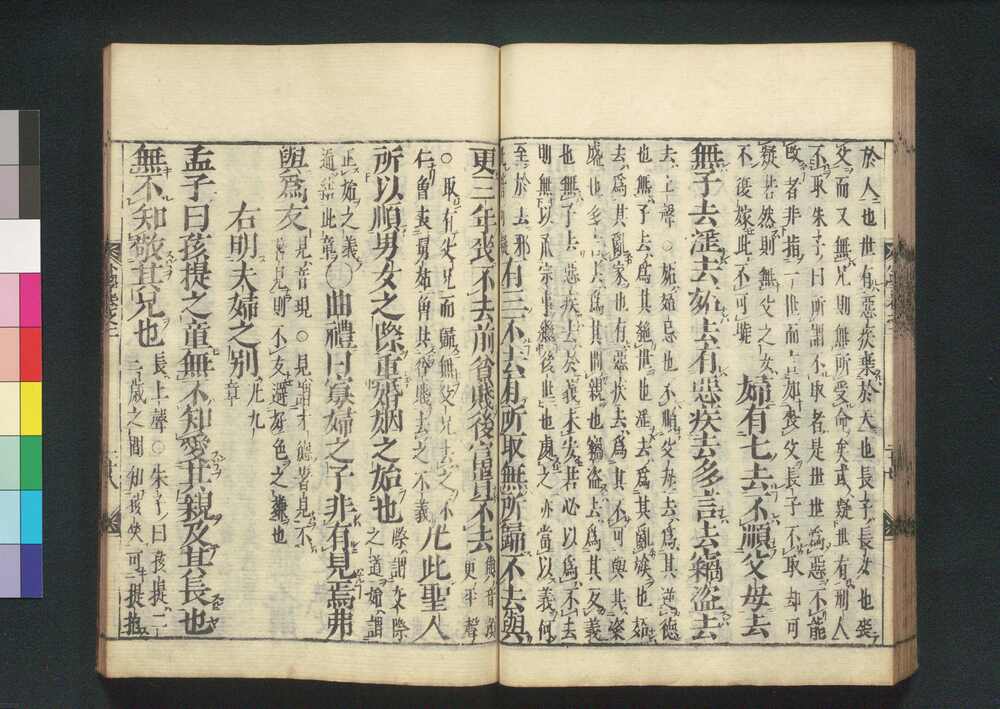 於人也世有惡疾棄於天也長子長女也喪
父而又無兄則無所受命矣或疑世有刑人
不取朱子曰所謂不取者是世世為惡不能
改者非指一世而言如喪父長子不取却可
疑若然則無父之女
不復嫁此不可曉
婦有七去不順父母去
無子去淫去妬去有惡疾去多言去竊盜去
去上聲○妬忌也不順父母去為其逆德
也無子去為其絕世也淫去為其亂族也妬
去為其亂家也有惡疾去為其不可與共粢
盛也多言去為其間親也竊盜去為其反義
也無子去惡疾去於義未安其必以為不去
則無以承宗事繼後世也處之亦當以義何
至於去邪
有三不去有所取無所歸不去與
更三年喪不去前貧賤後富貴不去
與音預
更平聲
○取有父兄而歸無父兄去之不
仁曾喪舅姑與共貧賤去之不義
凡此聖人
所以順男女之際重婚姻之始也
際謂交際
之道婚謂
正始之義
通結此章
○曲禮曰寡婦之子非有見焉弗
與為友
見音現○見謂才能著見不
著見則不友避好色之嫌也
右明夫婦之別
凡九
章
孟子曰孩提之童無不知愛其親及其長也
無不知敬其兄也
長上聲○朱子曰孩提二
三歲之間知孩笑可提抱